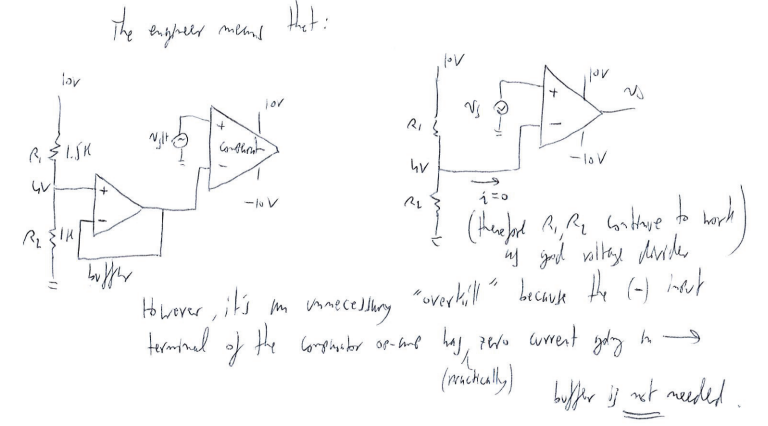 The engineer means that:
10V
R1 1.5K
4V
R2 1K
buffer
vs(t)
+
-
comparator
10V
-10V
+
-
10V
R1
4V
R2
vs
+
-
10V
-10V
vo
i=0
(therefore R1, R2 continue to work
as good voltage divider
However, it's an unnecessary "overkill" because the (-) input
terminal of the comparator op-amp has zero current going in →
(practically)
buffer is not needed.